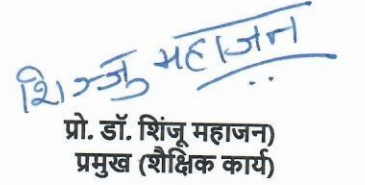 शिन्जु महाजन
प्रो. डॉ. शिंजू महाजन)
प्रमुख (शैक्षिक कार्य)